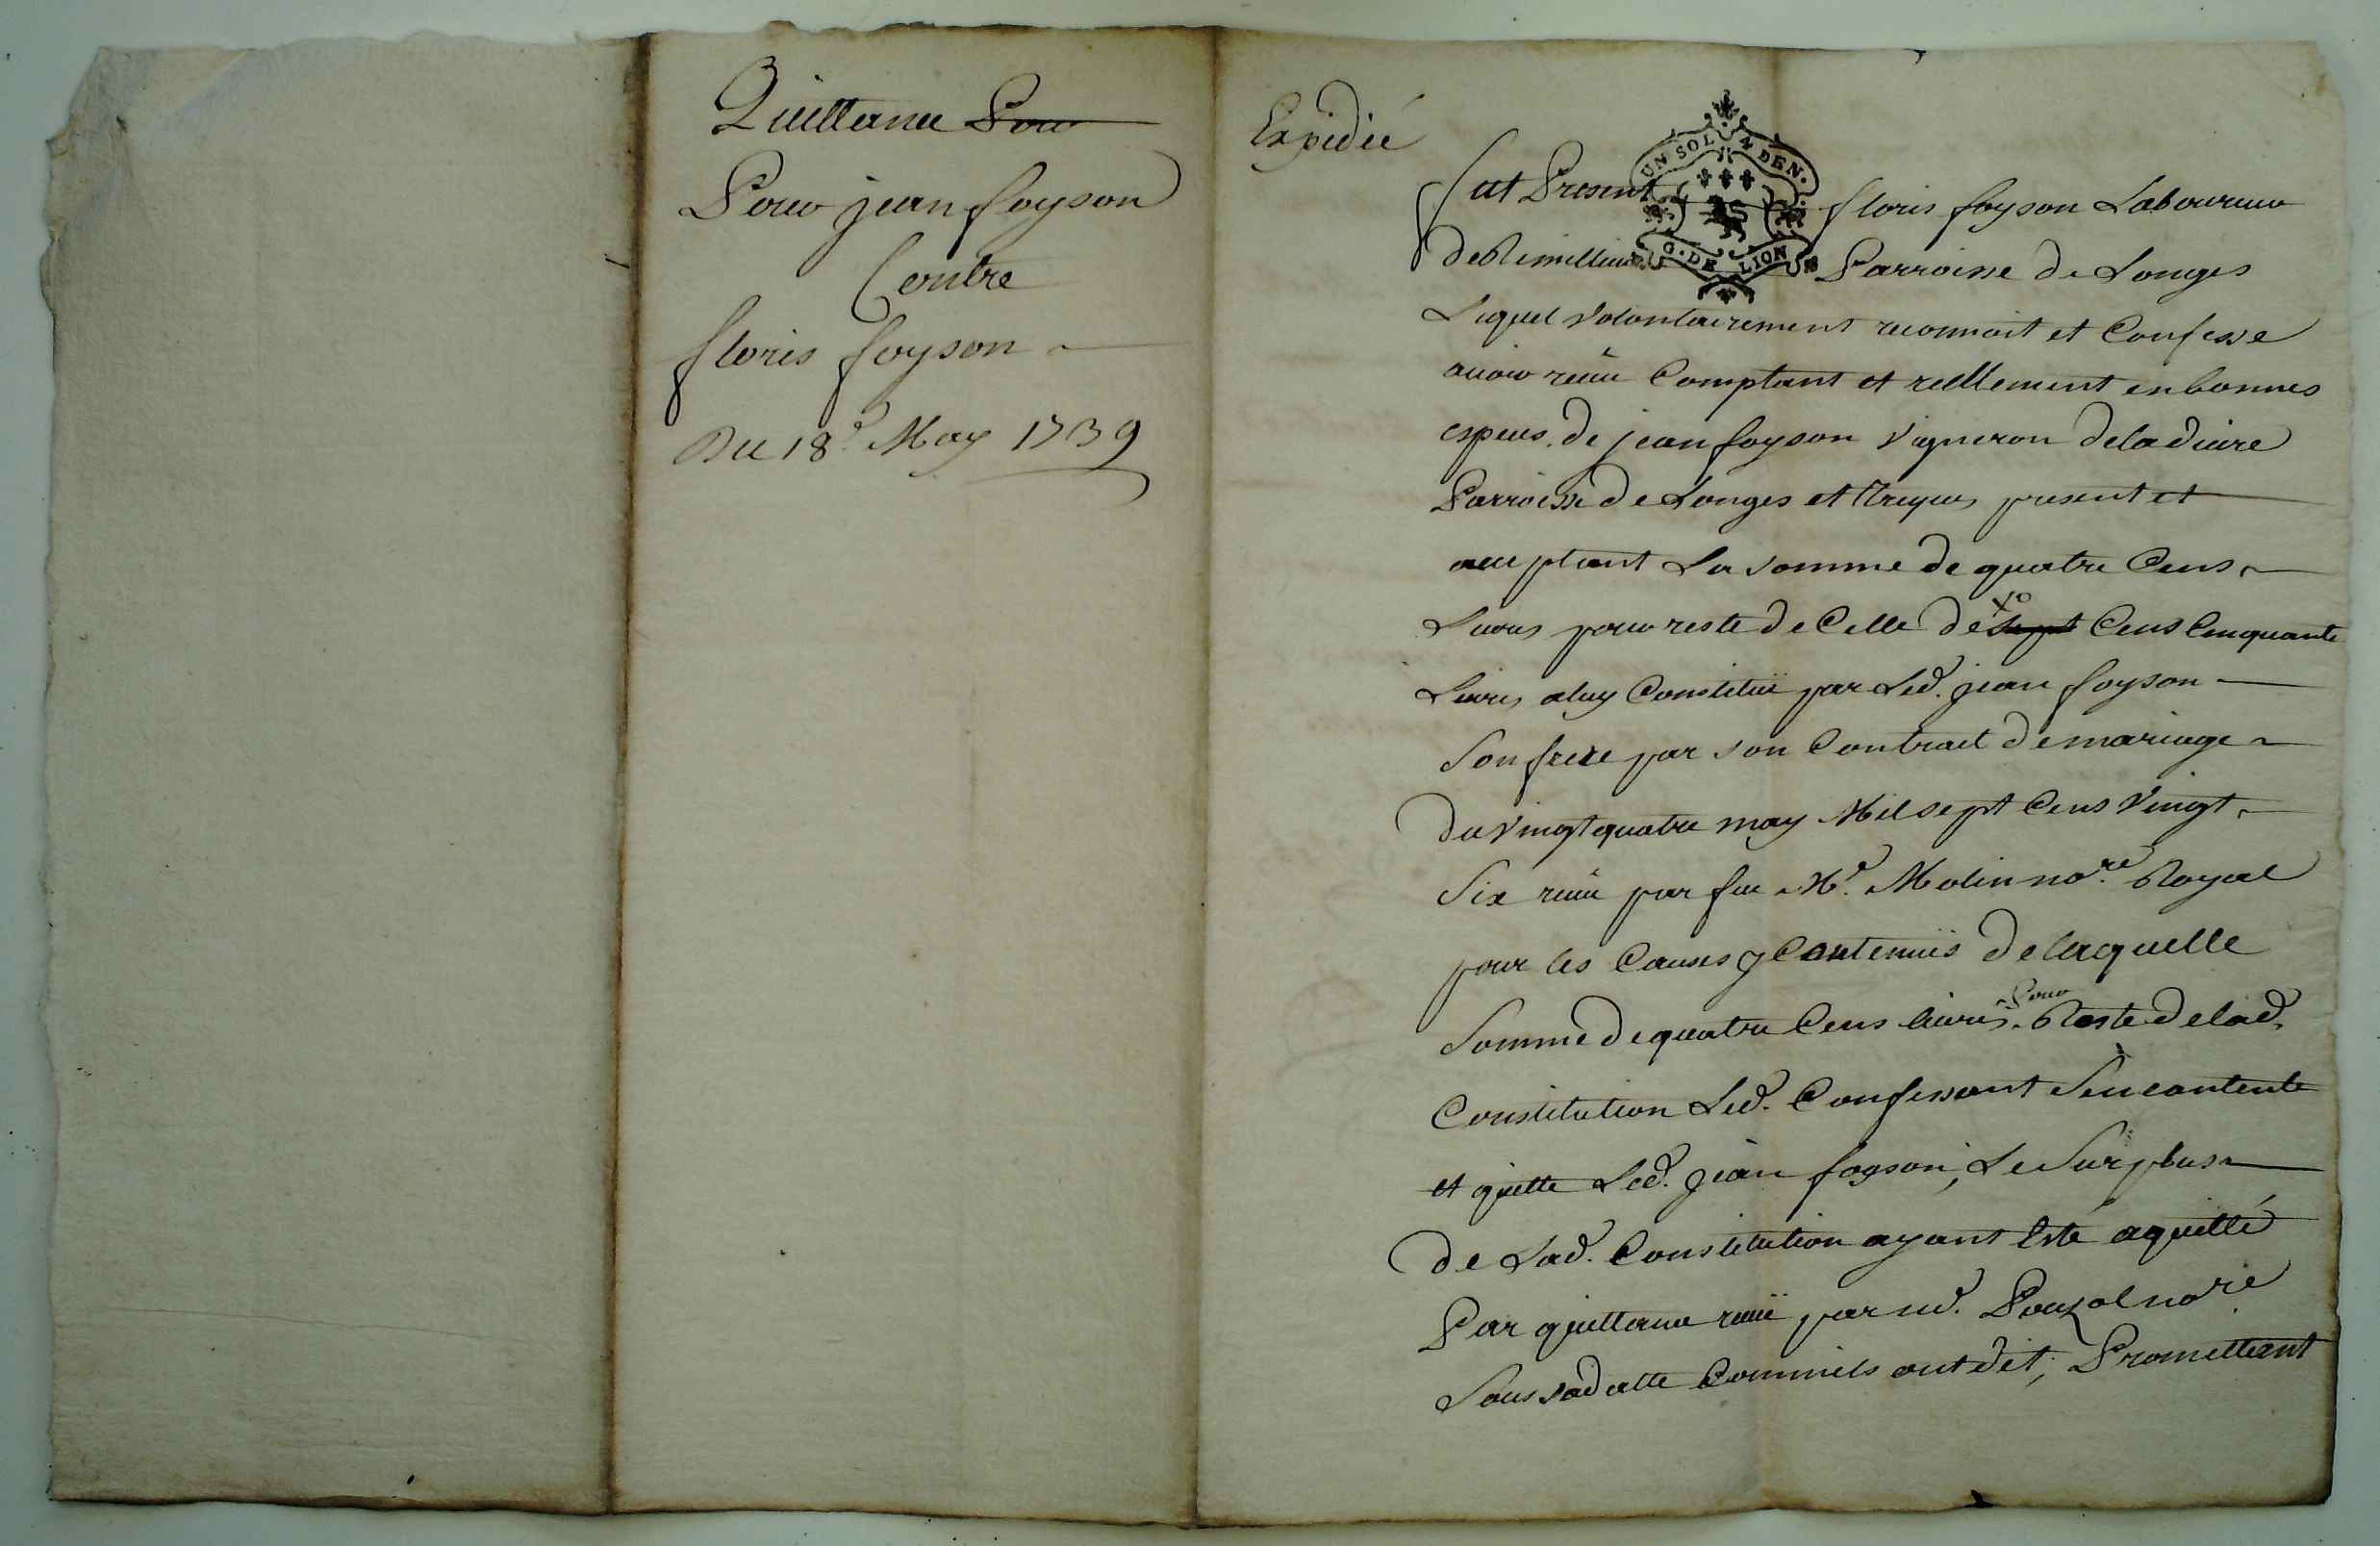 Quittance Pour
Pour jean foyson
Contre
floris foyson
Du 18e May 1739
Expédié
UN SOL 4 DEN.
G. DE LION
fut Present floris foyson Laboureur
de Remillieu Parroisse de Longes
Lequel volontairement reconnoit et Confesse
avoir reçu Comptant et reellement en bonnes
especes de jean foyson vigneron de la
Parroisse de Longes et Treque present et
acceptant La somme de quatre Cens
Livres pour reste de Celle de sept Cens Cinquante
Livres aluy Constitué par Led. jean foyson
Son frere par son Contract de mariage
du vingt quatre may Mil sept Cens vingt
Six reçu par feu Me. Molin nore. Royal
pour les Causes y Contenuës de laquelle
Somme de quatre Cens livres pour Reste de lad.
Constitution Led. Confessant Sen contente
et quitte Led. jean foyson, Le Surplus
de Lad. Constitution ayant Esté aquitté
Par quittance reçuë par Me. Pouzol nore
Sous sa datte Comm'ils ont dit, Promettant